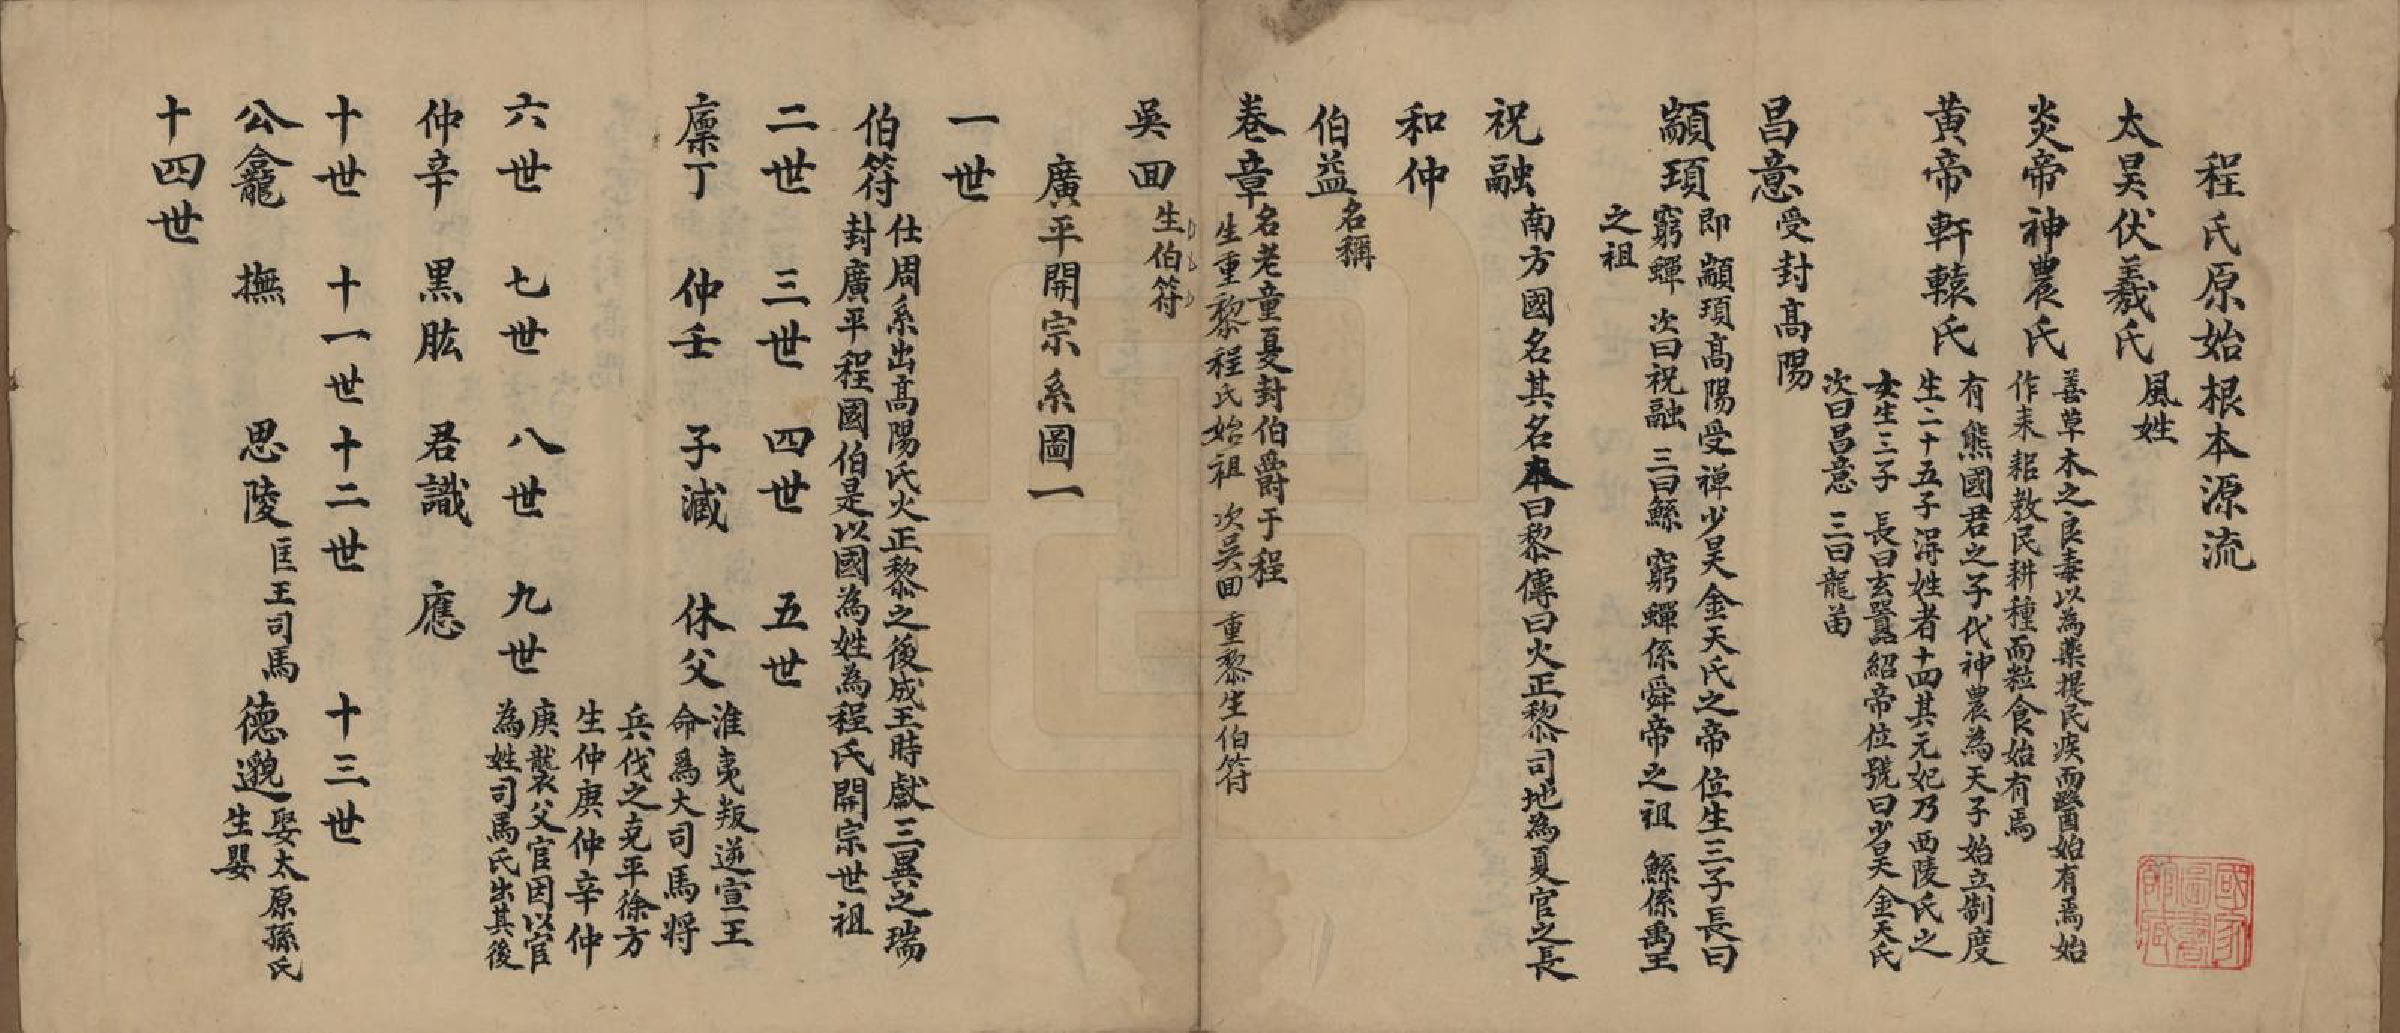 程氏原始根本源流
太昊伏羲氏 風姓
炎帝神農氏 善草木之良毒以為藥提民疾而醫始有焉始
作耒耜教民耕種而粒食始有焉
黄帝軒轅氏 有熊國君之子代神農為天子始立制度
生二十五子淂姓者十四其元妃乃西陵氏之
女生三子 長曰玄囂紹帝位號曰少昊金天氏
次曰昌意 三曰龍苗
昌意 受封高陽
顓頊 即顓頊高陽受禅少昊金天氏之帝位生三子長曰
窮蟬 次曰祝融 三曰鯀 窮蟬係舜帝之祖 鯀係禹王
之祖
祝融 南方國名其名本曰黎傳曰火正黎司地為夏官之長
和仲
伯益 名稱
卷章 名老童夏封伯爵于程
生重黎程氏始祖 次吳回 重黎生伯符
吳回 生伯符
廣平開宗系圖一
一世
伯符 仕周系出高陽氏火正黎之後成王時獻三異之瑞
封廣平程國伯是以國為姓為程氏開宗世祖
二世 三世 四世 五世
廪丁 仲壬 子滅 休父 淮夷叛逆宣王
命爲大司馬將
兵伐之克平徐方
生仲庚仲辛仲
庚襲父官因以官
為姓司馬氏出其後
六世 七世 八世 九世
仲辛 黑肱 君識 應
十世 十一世 十二世 十三世
公龕 撫 思陵 匡王司馬 德邈 娶太原孫氏
生嬰
十四世
國家圖書館藏